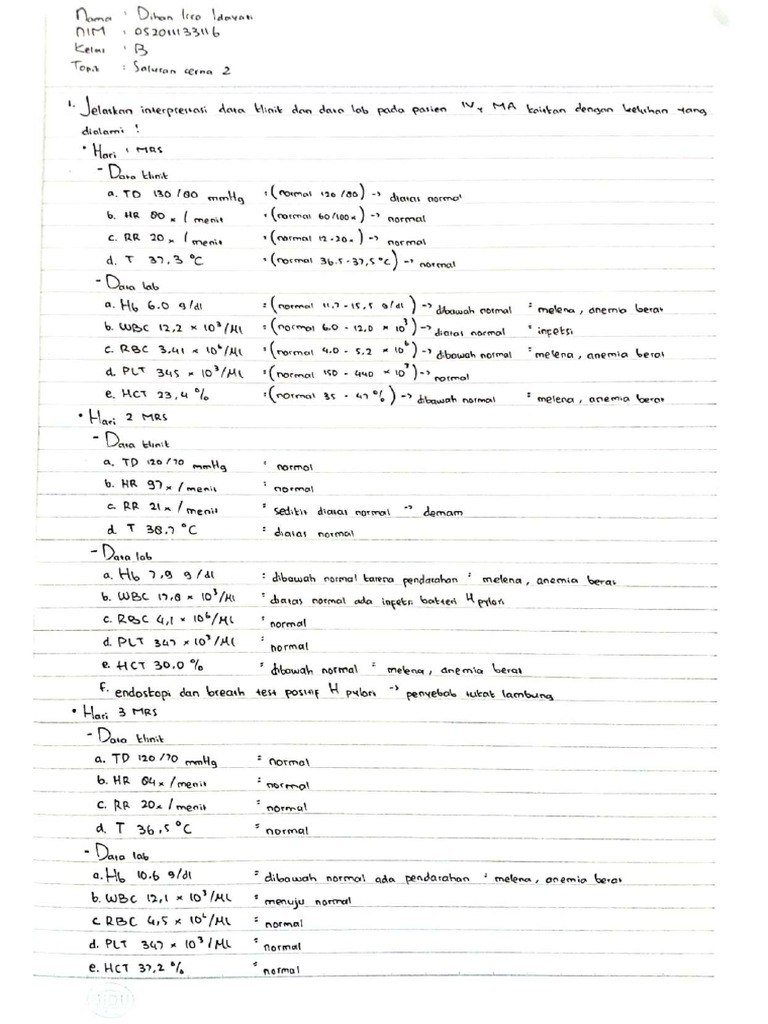 Nama : Dihan Icro Idayati
NIM : 052011133116
Kelas : B
Topik : Saluran cerna 2
1. Jelaskan interpretasi data klinik dan data lab pada pasien Ny MA kaitkan dengan keluhan yang
dialami !
• Hari 1 MRS
- Data klinik
a. TD 130/80 mmHg : (normal 120/80) → diatas normal
b. HR 80x / menit : (normal 60/100x) → normal
c. RR 20x / menit : (normal 12-20x) → normal
d. T 37,3 °C : (normal 36.5-37,5°C) → normal
- Data lab
a. Hb 6.0 g/dl : (normal 11.7-15,5 g/dl) → dibawah normal : melena, anemia berat
b. WBC 12,2 x 10³/Ml : (normal 6.0 - 12,0 x 10³) → diatas normal : infeksi
c. RBC 3,41 x 10⁶/Ml : (normal 4.0 - 5.2 x 10⁶) → dibawah normal : melena, anemia berat
d. PLT 345 x 10³/Ml : (normal 150 - 440 x 10³) → normal
e. HCT 23,4 % : (normal 35 - 47 %) → dibawah normal : melena, anemia berat
• Hari 2 MRS
- Data klinik
a. TD 120/70 mmHg : normal
b. HR 97x / menit : normal
c. RR 21x / menit : sedikit diatas normal → demam
d T 38,7 °C : diatas normal
- Data lab
a. Hb 7,9 g/dl : dibawah normal karena pendarahan : melena, anemia berat
b. WBC 17,8 x 10³/Ml : diatas normal ada infeksi bakteri H pylori
c. RBC 4,1 x 10⁶/Ml : normal
d. PLT 347 x 10³/Ml : normal
e. HCT 30.0 % : dibawah normal : melena, anemia berat
f. endoskopi dan breath test positif H pylori → penyebab tukak lambung
• Hari 3 MRS
- Data klinik
a. TD 120/70 mmHg : normal
b. HR 84x / menit : normal
c. RR 20x / menit : normal
d. T 36,5 °C : normal
- Data lab
a. Hb 10.6 g/dl : dibawah normal ada pendarahan : melena, anemia berat
b. WBC 12,1 x 10³/Ml : menuju normal
c RBC 4,5 x 10⁶/Ml : normal
d. PLT 347 x 10³/Ml : normal
e. HCT 37,2 % : normal
SIDU